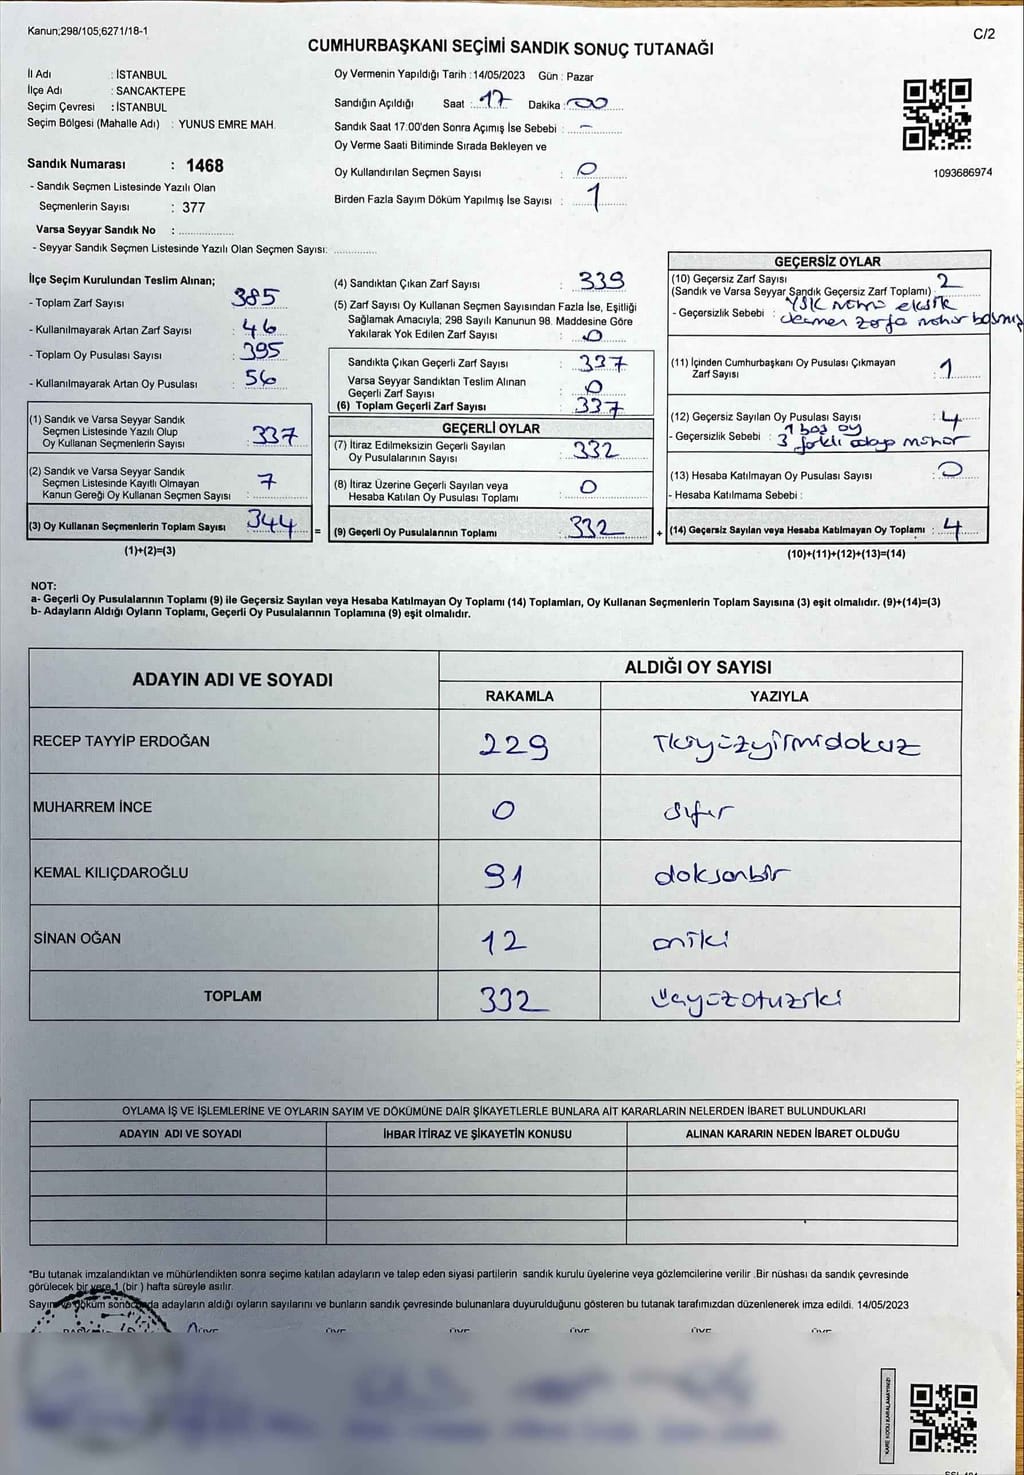 Kanun;298/105,6271/18-1
C/2
CUMHURBAŞKANI SEÇİMİ SANDIK SONUÇ TUTANAĞI
İl Adı : İSTANBUL
İlçe Adı : SANCAKTEPE
Seçim Çevresi : İSTANBUL
Seçim Bölgesi (Mahalle Adı) : YUNUS EMRE MAH.
Sandık Numarası : 1468
- Sandık Seçmen Listesinde Yazılı Olan
Seçmenlerin Sayısı : 377
Varsa Seyyar Sandık No :
- Seyyar Sandık Seçmen Listesinde Yazılı Olan Seçmen Sayısı:
Oy Vermenin Yapıldığı Tarih :14/05/2023 Gün : Pazar
Sandığın Açıldığı Saat : 17 Dakika : 00
Sandık Saat 17:00'den Sonra Açımış İse Sebebi : -
Oy Verme Saati Bitiminde Sırada Bekleyen ve
Oy Kullandırılan Seçmen Sayısı : 0
Birden Fazla Sayım Döküm Yapılmış İse Sayısı : 1
1093686974
İlçe Seçim Kurulundan Teslim Alınan;
- Toplam Zarf Sayısı : 385
- Kullanılmayarak Artan Zarf Sayısı : 46
- Toplam Oy Pusulası Sayısı : 395
- Kullanılmayarak Artan Oy Pusulası : 56
(1) Sandık ve Varsa Seyyar Sandık
Seçmen Listesinde Yazılı Olup
Oy Kullanan Seçmenlerin Sayısı : 337
(2) Sandık ve Varsa Seyyar Sandık
Seçmen Listesinde Kayıtlı Olmayan
Kanun Gereği Oy Kullanan Seçmen Sayısı : 7
(3) Oy Kullanan Seçmenlerin Toplam Sayısı : 344 =
(1)+(2)=(3)
(4) Sandıktan Çıkan Zarf Sayısı : 339
(5) Zarf Sayısı Oy Kullanan Seçmen Sayısından Fazla İse, Eşitliği
Sağlamak Amacıyla, 298 Sayılı Kanunun 98. Maddesine Göre
Yakılarak Yok Edilen Zarf Sayısı : 0
Sandıkta Çıkan Geçerli Zarf Sayısı : 337
Varsa Seyyar Sandıktan Teslim Alınan
Geçerli Zarf Sayısı : 0
(6) Toplam Geçerli Zarf Sayısı : 337
GEÇERLİ OYLAR
(7) İtiraz Edilmeksizin Geçerli Sayılan
Oy Pusulalarının Sayısı : 332
(8) İtiraz Üzerine Geçerli Sayılan veya
Hesaba Katılan Oy Pusulası Toplamı : 0
(9) Geçerli Oy Pusulalarının Toplamı : 332 +
GEÇERSİZ OYLAR
(10) Geçersiz Zarf Sayısı
(Sandık ve Varsa Seyyar Sandık Geçersiz Zarf Toplamı) : 2
- Geçersizlik Sebebi : YSK mührü eksik
seçmen zarfa mühür basmış
(11) İçinden Cumhurbaşkanı Oy Pusulası Çıkmayan
Zarf Sayısı : 1
(12) Geçersiz Sayılan Oy Pusulası Sayısı : 4
- Geçersizlik Sebebi : 1 boş oy
3 farklı adaya mühür
(13) Hesaba Katılmayan Oy Pusulası Sayısı : 0
- Hesaba Katılmama Sebebi :
(14) Geçersiz Sayılan veya Hesaba Katılmayan Oy Toplamı : 4
(10)+(11)+(12)+(13)=(14)
NOT:
a- Geçerli Oy Pusulalarının Toplamı (9) ile Geçersiz Sayılan veya Hesaba Katılmayan Oy Toplamı (14) Toplamları, Oy Kullanan Seçmenlerin Toplam Sayısına (3) eşit olmalıdır. (9)+(14)=(3)
b- Adayların Aldığı Oyların Toplamı, Geçerli Oy Pusulalarının Toplamına (9) eşit olmalıdır.
ADAYIN ADI VE SOYADI
ALDIĞI OY SAYISI
RAKAMLA YAZIYLA
RECEP TAYYİP ERDOĞAN 229 İkiyüzyirmidokuz
MUHARREM İNCE 0 sıfır
KEMAL KILIÇDAROĞLU 91 doksanbir
SİNAN OĞAN 12 oniki
TOPLAM 332 üçyüzotuziki
OYLAMA İŞ VE İŞLEMLERİNE VE OYLARIN SAYIM VE DÖKÜMÜNE DAİR ŞİKAYETLERLE BUNLARA AİT KARARLARIN NELERDEN İBARET BULUNDUKLARI
ADAYIN ADI VE SOYADI İHBAR İTİRAZ VE ŞİKAYETİN KONUSU ALINAN KARARIN NEDEN İBARET OLDUĞU
*Bu tutanak imzalandıktan ve mühürlendikten sonra seçime katılan adayların ve talep eden siyasi partilerin sandık kurulu üyelerine veya gözlemcilerine verilir .Bir nüshası da sandık çevresinde
görülecek bir yere 1 (bir ) hafta süreyle asılır.
Sayım ve döküm sonucunda adayların aldığı oyların sayılarını ve bunların sandık çevresinde bulunanlara duyurulduğunu gösteren bu tutanak tarafımızdan düzenlenerek imza edildi. 14/05/2023
ÜYE ÜYE ÜYE ÜYE ÜYE ÜYE
KARE KODU KARALAMAYINIZ!